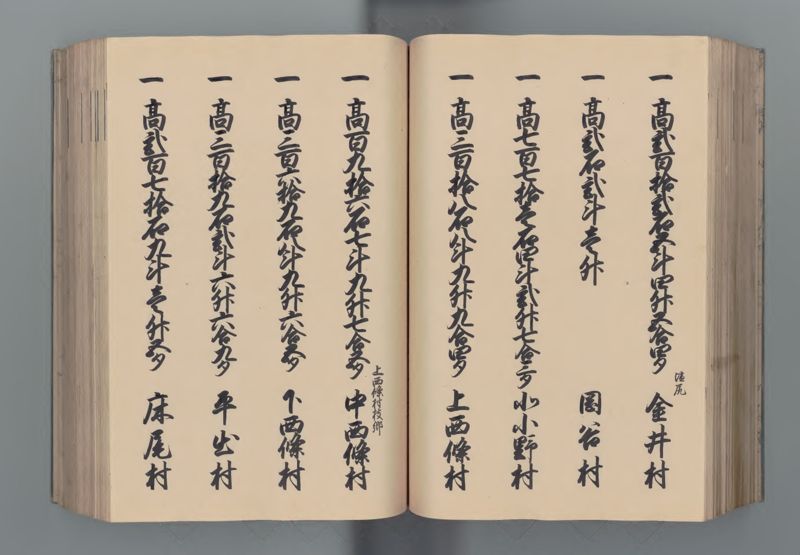 一 高貳百拾貳石五斗四升五合四夕 塩尻 金井村
一 高貳石貳斗壱升 岡谷村
一 高七百七拾壱石四斗貳升七合三夕 北小野村
一 高三百拾八石八斗九升九合四夕 上西條村
一 高百九拾六石七斗九升七合五夕 上西條村枝郷 中西條村
一 高三百六拾九石八斗九升六合五夕 下西條村
一 高三百拾九石貳斗六升六合九夕 平出村
一 高貳百七拾石九斗壱升五夕 床尾村